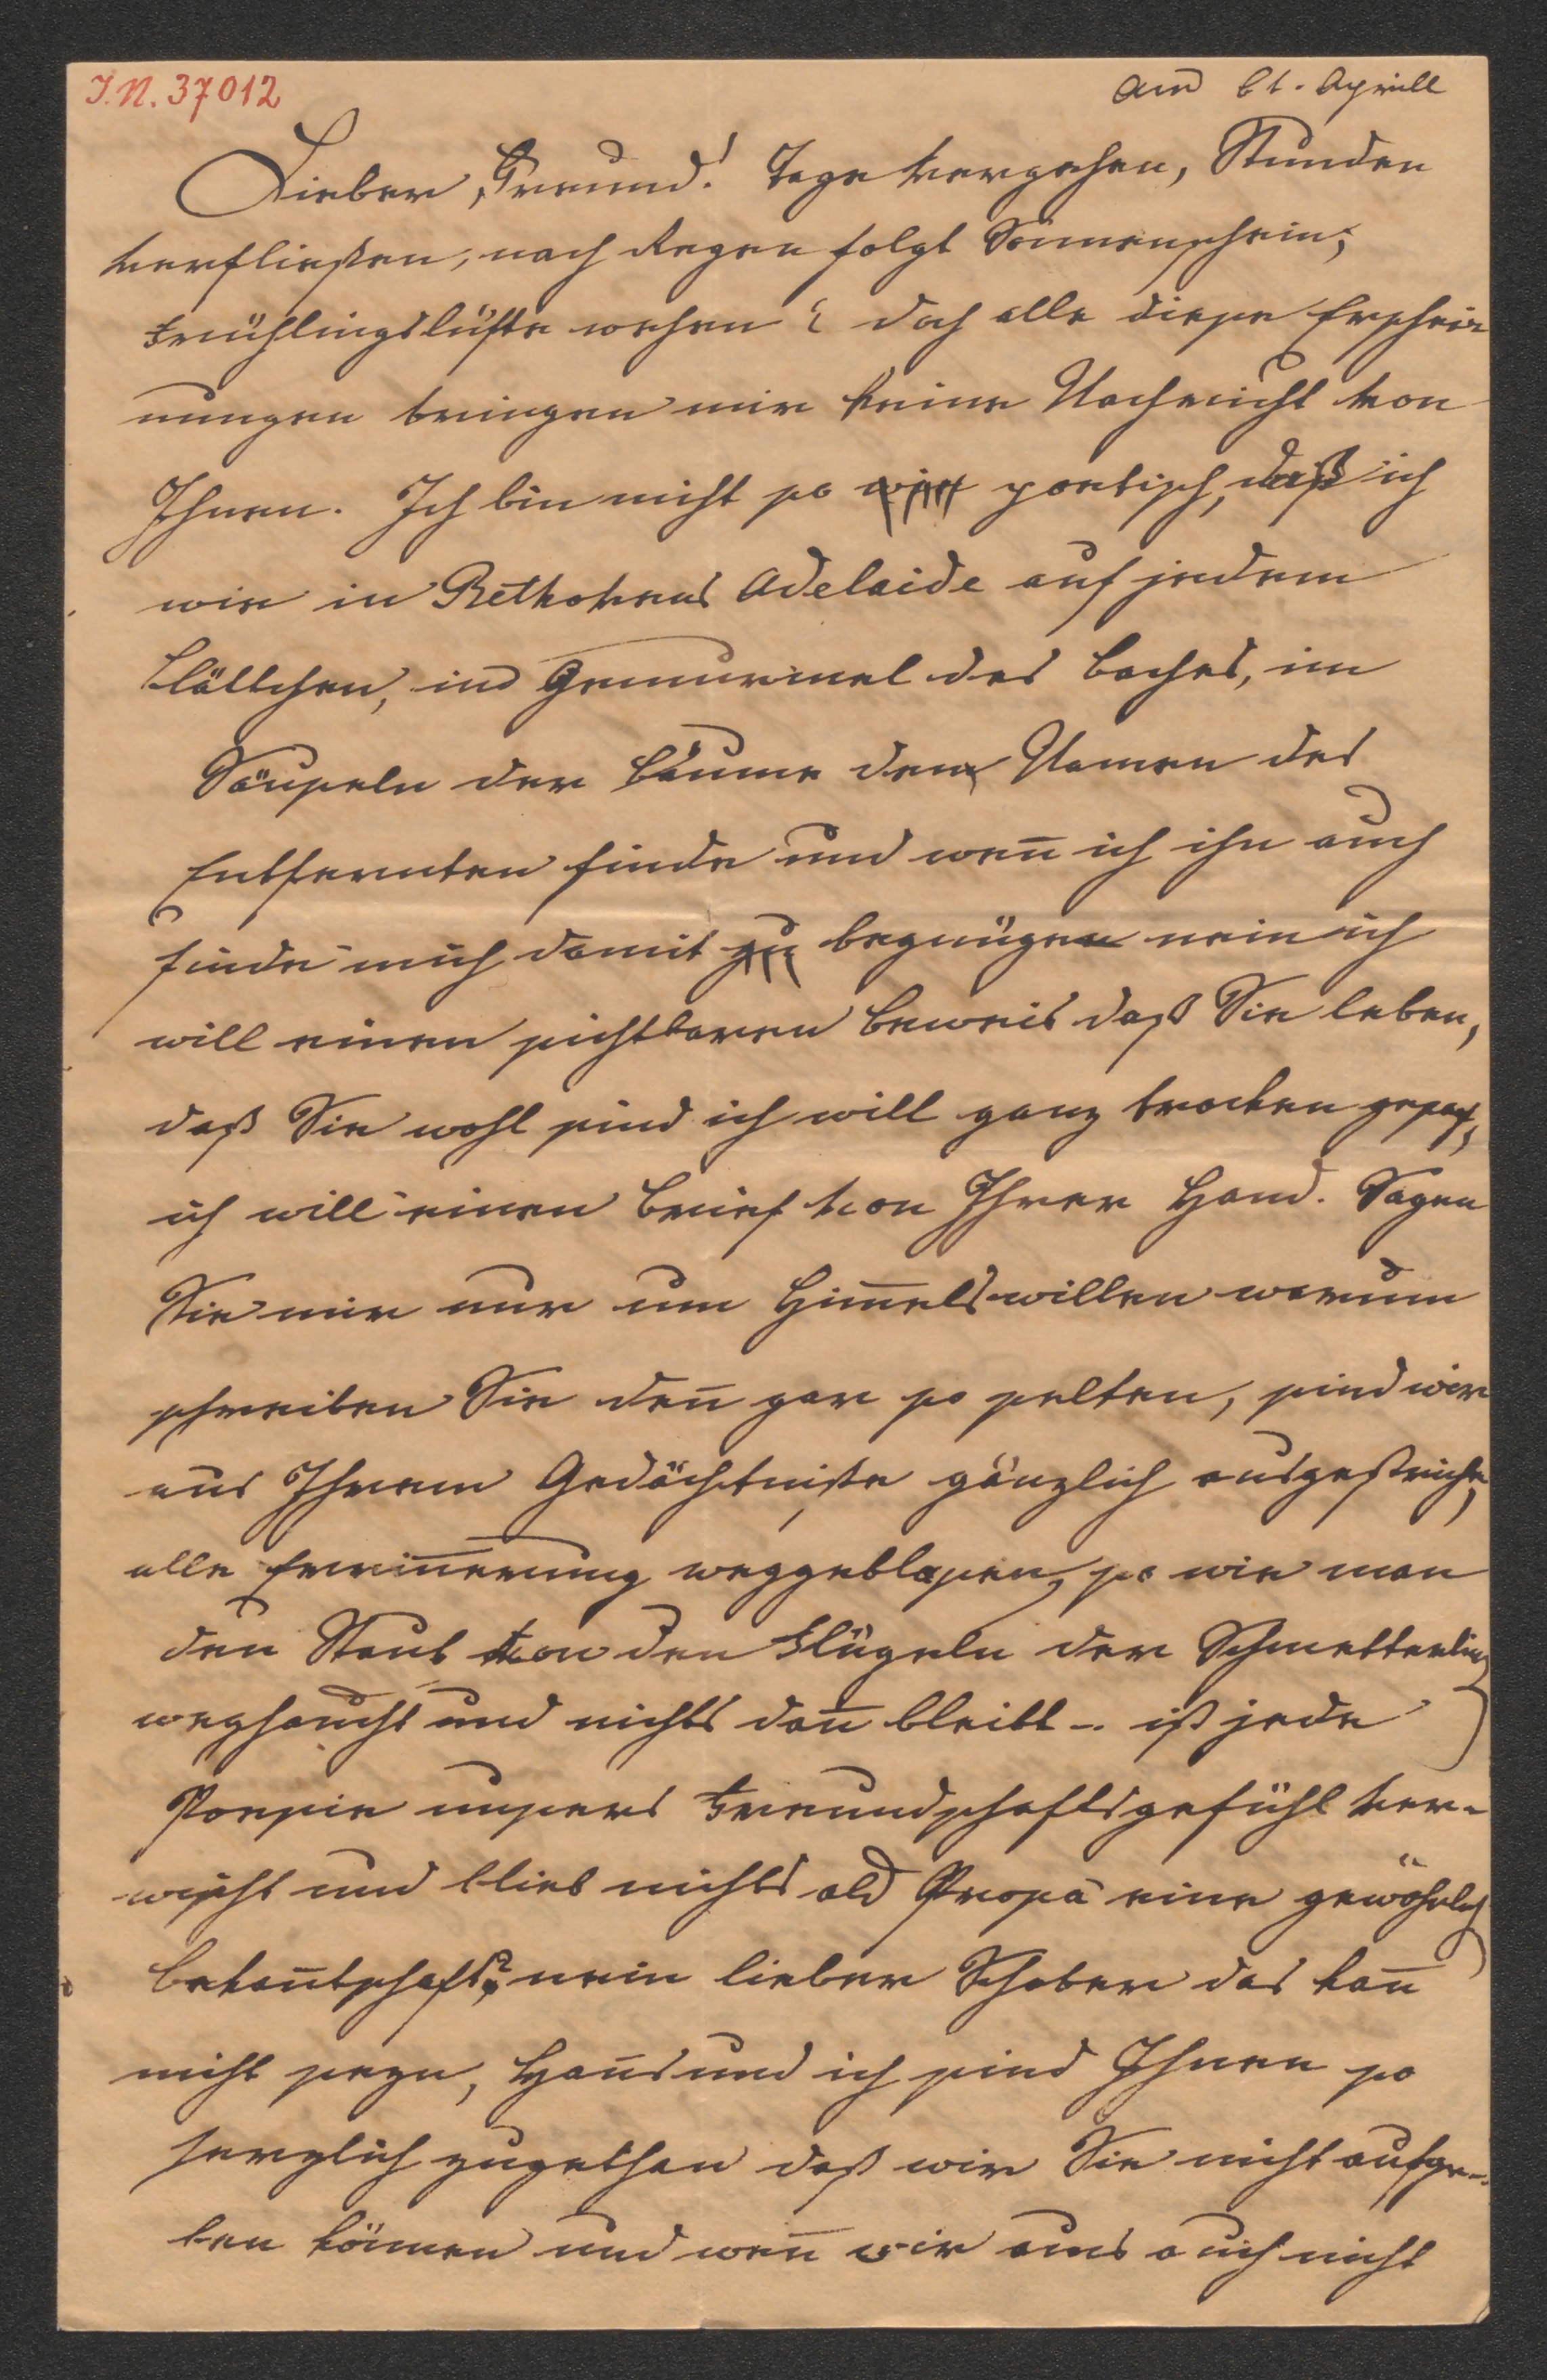 I.N. 37012
am 21. Aprill
Lieber Freund! Tage vergehen, Stunden
verfließen, nach Regen folgt Sonnenschein,
Frühlingslüfte wehen doch alle diese Erschei
nungen bringen mir keine Nachricht von
Ihnen. Ich bin nicht so poetisch, daß ich
wie in Bethovens Adelaide auf jedem
Blättchen, im Gemurmel des Baches, im
Säuseln der Bäume den Namen des
Entfernten finde und wen̅ ich ihn auch
finde mich damit zu begnügen nein ich
will einen sichtbaren Beweis daß Sie leben,
daß Sie wohl sind ich will ganz trocken gesagt,
ich will einen Brief von Ihrer Hand. Sagen
Sie mir nur um Him̅elswillen warum
schreiben Sie den̅ gar so selten, sind wir
aus Ihrem Gedächtniße gänzlich ausgestrichen,
alle Erin̅erung weggeblasen, so wie man
den Staub von den Flügeln der Schmetterling
weghaucht und nichts dan̅ bleibt – ist jede
Poesie unsers Freundschaftsgefühl ver-
wischt und blieb nichts als Prosa eine gewöhnlich
Bekan̅tschaft? nein lieber Schober das kan̅
nicht seyn, Hans und ich sind Ihnen so
herzlich zugethan daß wir Sie nicht aufge-
ben können und wen̅ wir uns auch nicht